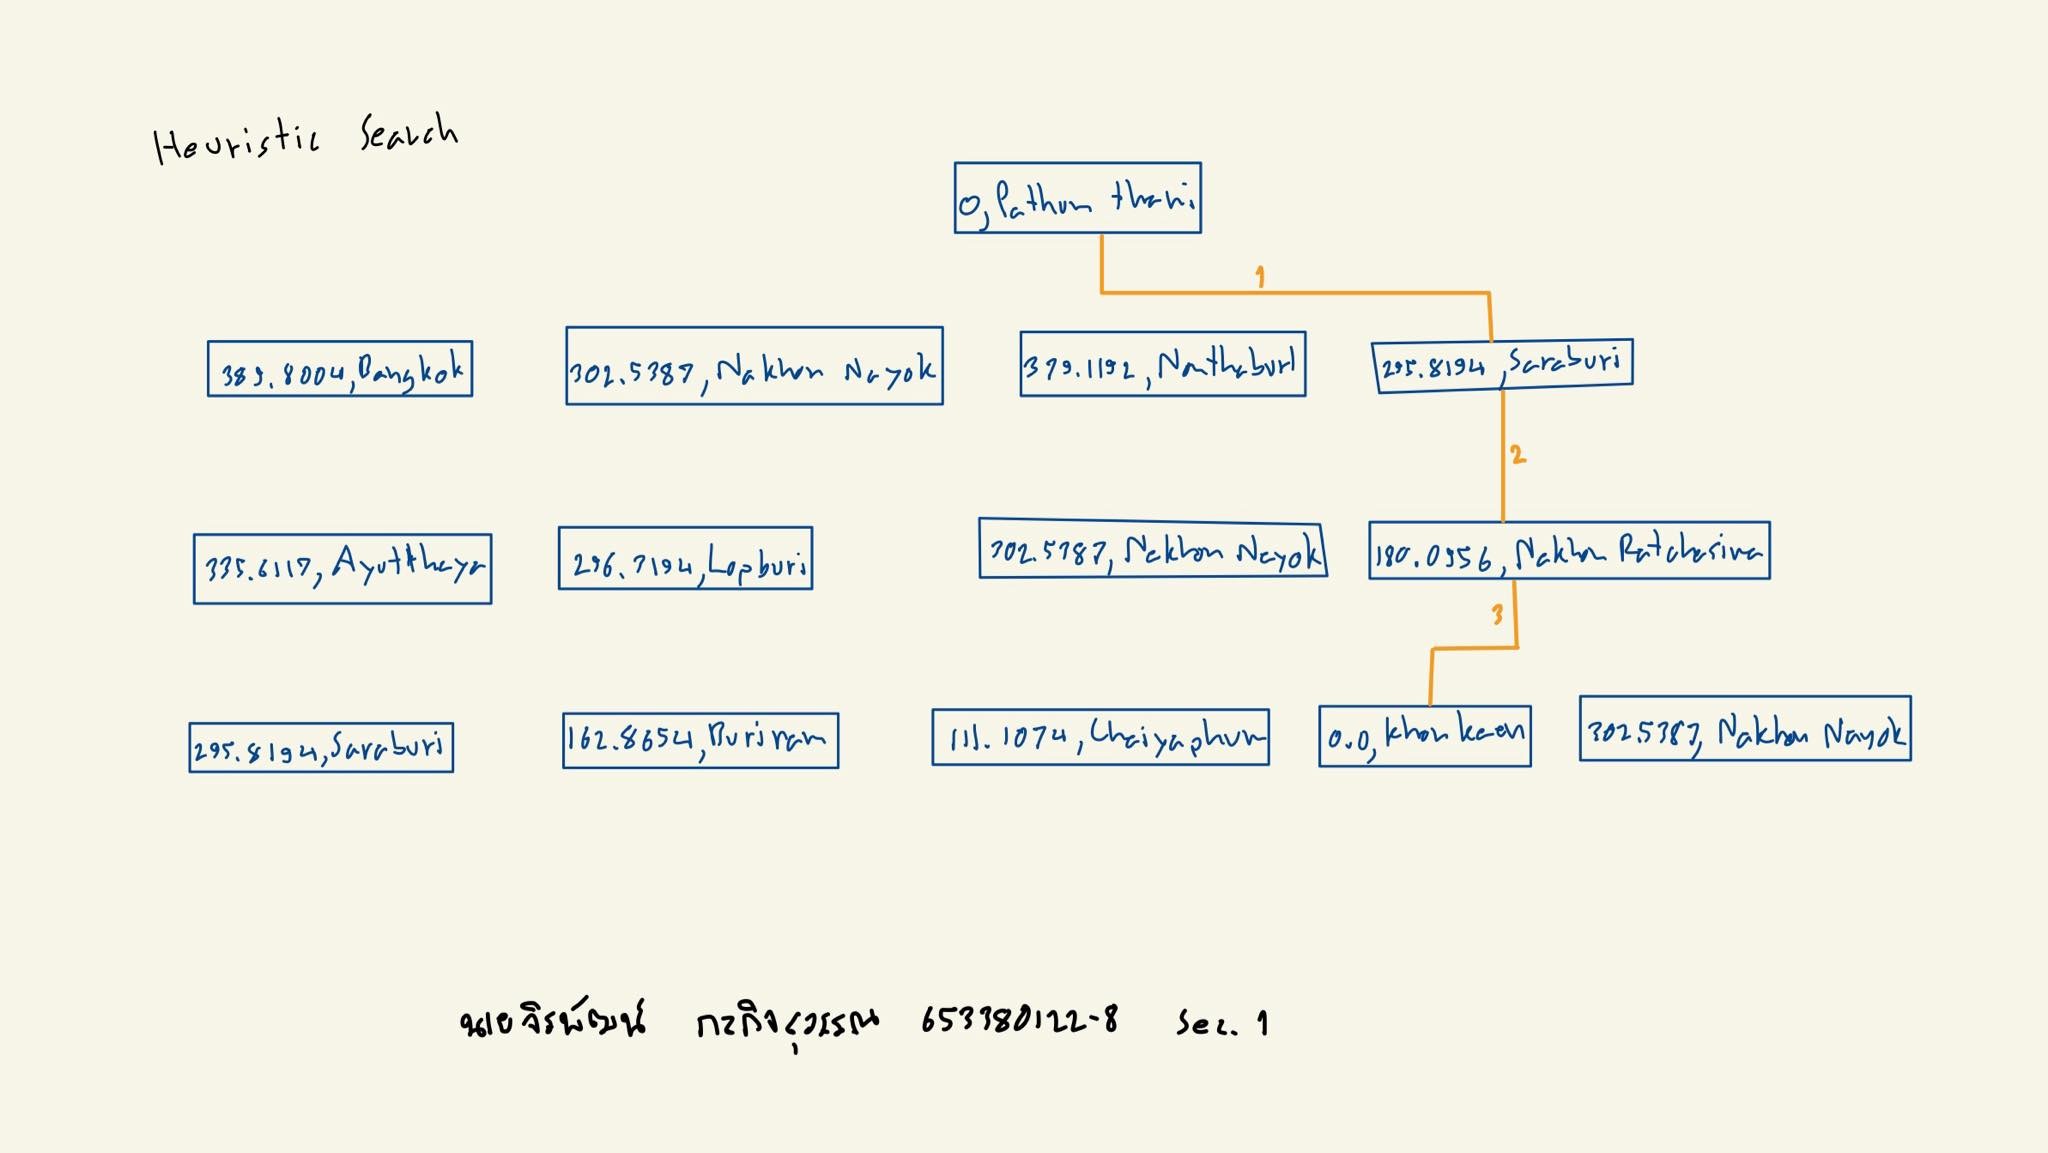 Heuristic Search
0, Pathum thani
1
389.8004, Bangkok
302.5387, Nakhon Nayok
379.1192, Nonthaburi
295.8194, Saraburi
2
335.6117, Ayutthaya
296.7194, Lopburi
302.5387, Nakhon Nayok
180.0956, Nakhon Ratchasima
3
295.8194, Saraburi
162.8654, Buriram
111.1074, Chaiyaphum
0.0, khon kaen
302.5387, Nakhon Nayok
นายจิรพัฒน์ 653380122-8 Sec. 1